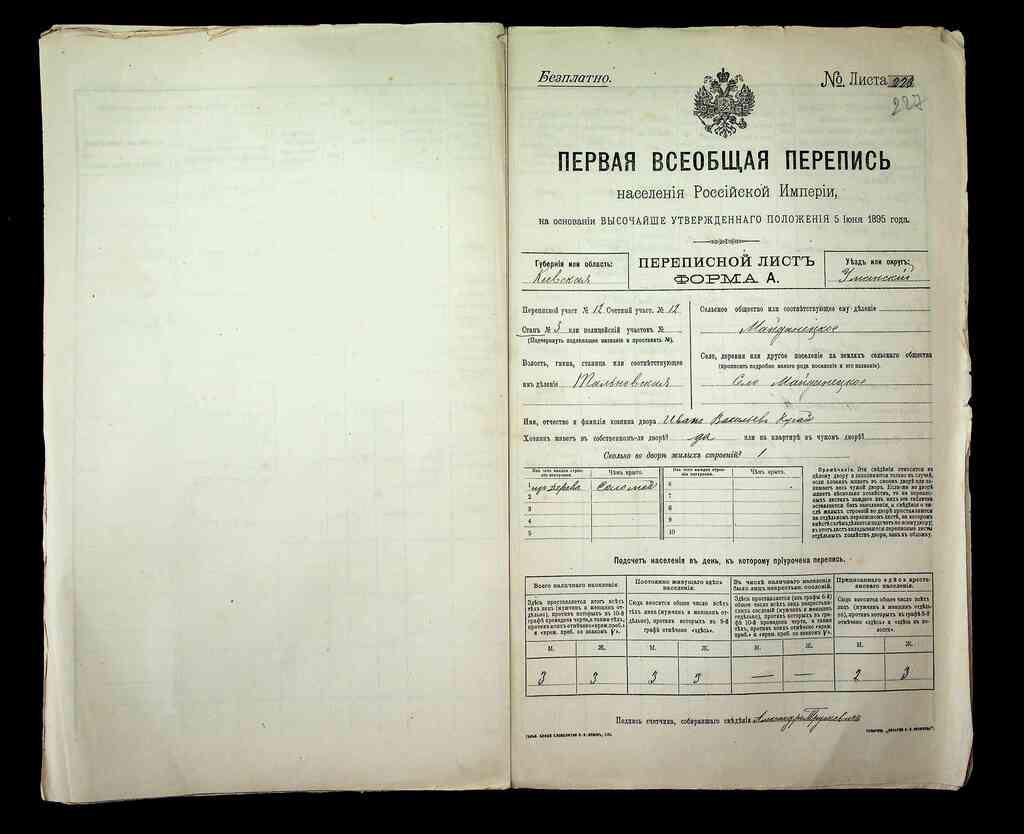 Безплатно.
№ Листа 228
227
ПЕРВАЯ ВСЕОБЩАЯ ПЕРЕПИСЬ
населенія Россійской Имперіи,
на основаніи ВЫСОЧАЙШЕ УТВЕРЖДЕННАГО ПОЛОЖЕНІЯ 5 Іюня 1895 года.
Губернія или область:
Кіевская
ПЕРЕПИСНОЙ ЛИСТЪ
ФОРМА А.
Уѣздъ или округъ:
Уманскій
Переписной участ № 12 Счетный участ. № 12
Станъ № 3 или полицейскій участокъ №
(Подчеркнуть подлежащее названіе и проставить №).
Волость, гмина, станица или соотвѣтствующее
имъ дѣленіе Тальновская
Сельское общество или соотвѣтствующее ему дѣленіе
Майданецкое
Село, деревня или другое поселеніе на земляхъ сельскаго общества
(прописать подробно какого рода поселеніе и его названіе).
Село Майданецкое
Имя, отчество и фамилія хозяина двора Иванъ Васильевъ
Хозяинъ живетъ въ собственномъ-ли дворѣ? да или на квартирѣ въ чужомъ дворѣ?
Сколько во дворѣ жилыхъ строеній? 1
Изъ чего каждое строеніе построено. Чѣмъ крыто. Изъ чего каждое строеніе построено. Чѣмъ крыто.
1 изъ дерева Соломой 6
2 7
3 8
4 9
5 10
Примѣчаніе. Эти свѣдѣнія относятся къ
цѣлому двору и заполняются только въ случаѣ,
если хозяинъ живетъ въ своемъ дворѣ или занимаетъ
весь чужой дворъ. Если-же во дворѣ
живетъ нѣсколько хозяйствъ, то на переписныхъ
листахъ каждаго изъ нихъ эта табличка
оставляется безъ заполненія, а свѣдѣнія о числѣ
жилыхъ строеній во дворѣ проставляются
на отдѣльномъ переписномъ листѣ, на которомъ
вмѣстѣ съ тѣмъ дѣлается подсчетъ по всему двору;
въ этотъ листъ вкладываются переписные листы
отдѣльныхъ хозяйствъ двора, какъ въ обложку.
Подсчетъ населенія въ день, къ которому пріурочена перепись.
Всего наличнаго населенія
Здѣсь проставляется итогъ всѣхъ
тѣхъ лицъ (мужчинъ и женщинъ отдѣльно),
противъ которыхъ въ 10-й
графѣ проведена черта, а также тѣхъ,
противъ коихъ отмѣчено «врем. проб.»
Постоянно живущаго здѣсь
населенія.
Сюда вносится общее число всѣхъ
тѣхъ лицъ (мужчинъ и женщинъ отдѣльно),
противъ которыхъ въ 9-й
графѣ отмѣчено «здѣсь».
Въ числѣ наличнаго населенія
было лицъ некрестьян. сословій.
Здѣсь проставляется (изъ графы 6-й)
общее число всѣхъ лицъ некрестьянскихъ
сословій (мужчинъ и женщинъ
отдѣльно), противъ которыхъ въ графѣ
10-й проведена черта, а также
тѣхъ, противъ коихъ отмѣчено «врем.
проб.»
Приписаннаго здѣсь крестьянскаго
населенія.
Сюда вносится общее число всѣхъ
лицъ (мужчинъ и женщинъ отдѣльно),
противъ которыхъ въ графѣ 8-й
отмѣчено «здѣсь»
М. Ж. М. Ж. М. Ж. М. Ж.
3 3 3 3 — — 2 3
Подпись счетчика, собиравшаго свѣдѣнія